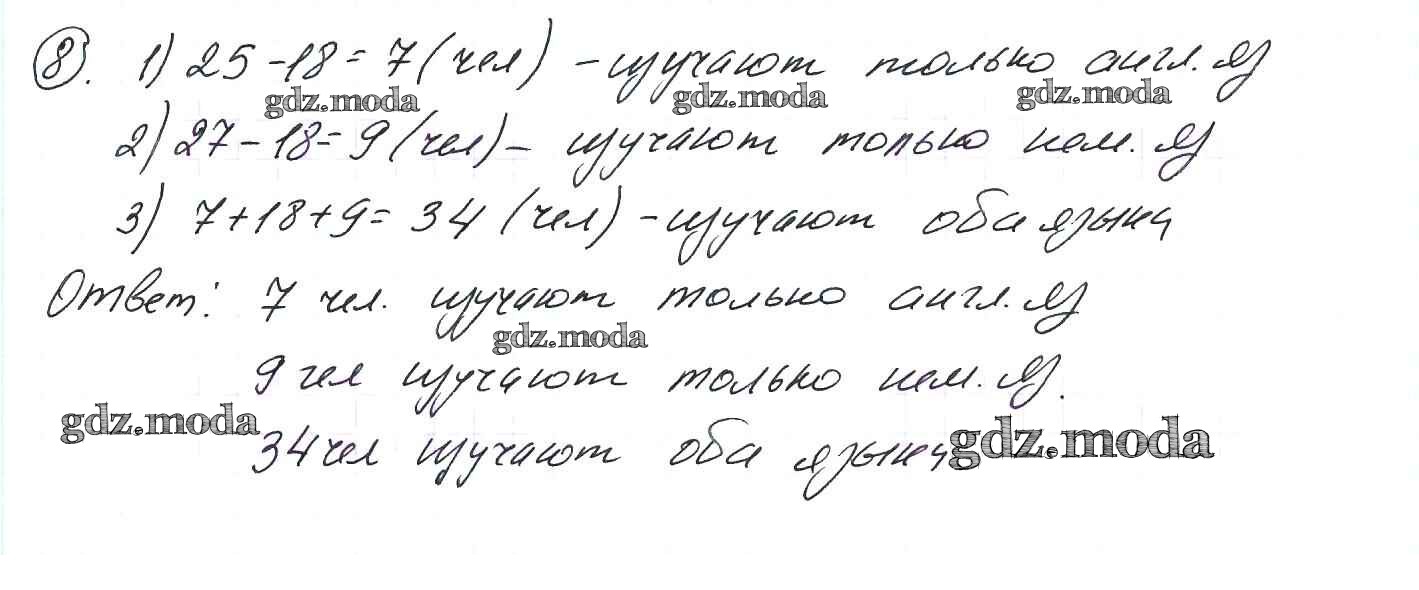 8. 1) 25 - 18 = 7 (чел) - изучают только англ. яз
gdz.moda gdz.moda gdz.moda
2) 27 - 18 = 9 (чел) - изучают только нем. яз
3) 7 + 18 + 9 = 34 (чел) - изучают оба языка
Ответ: 7 чел. изучают только англ. яз
gdz.moda
9 чел изучают только нем. яз.
gdz.moda
34 чел изучают оба языка gdz.moda